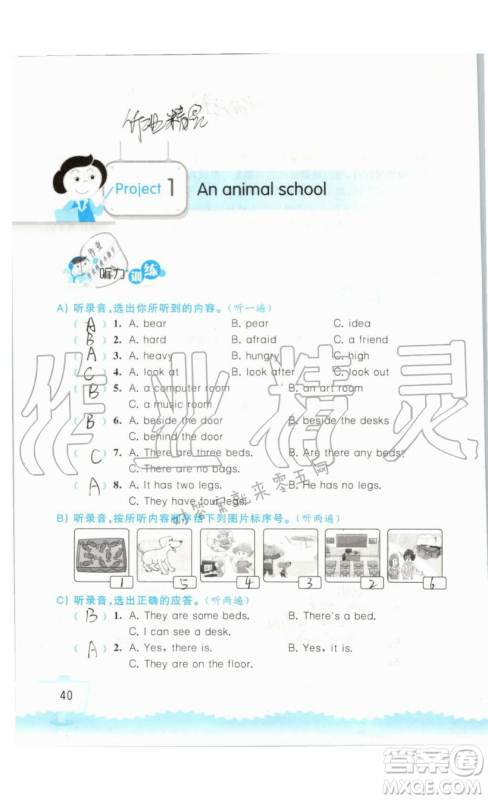 作业精灵
Project 1 An animal school
听力训练
A) 听录音,选出你所听到的内容。(听一遍)
( A ) 1. A. bear B. pear C. idea
( B ) 2. A. hard B. afraid C. a friend
( A ) 3. A. heavy B. hungry C. high
( C ) 4. A. look at B. look after C. look out
( B ) 5. A. a computer room B. an art room
C. a music room
( B ) 6. A. beside the door B. beside the desks
C. behind the door
( C ) 7. A. There are three beds. B. Are there any beds?
C. There are no bags.
( A ) 8. A. It has two legs. B. He has no legs.
C. They have four legs.
B) 听录音,按所听内容顺序给下列图片标序号。(听两遍)
1 5 4 3 2 6
C) 听录音,选出正确的应答。(听两遍)
( B ) 1. A. They are some beds. B. There's a bed.
C. I can see a desk.
( A ) 2. A. Yes, there is. B. Yes, it is.
C. They are on the floor.
40
作业精灵
答案就来零五网
答案圈
MXQE.COM